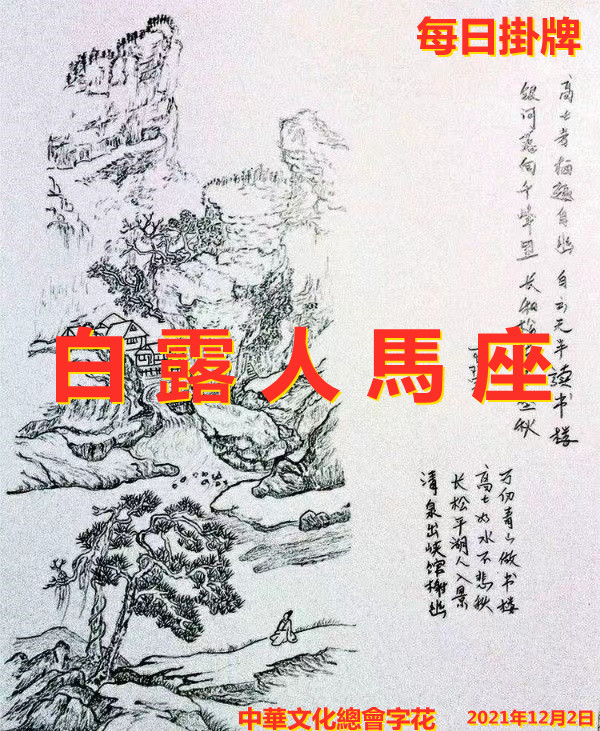 每日掛牌
高士寻梅趣自幽 白云 半读书楼
银河 向千峰 长 秋
白露人馬座
万仞青山做书楼
高士如水不悲秋
长松平湖人入景
清泉出峡馆榭幽
中華文化總會字花
2021年12月2日